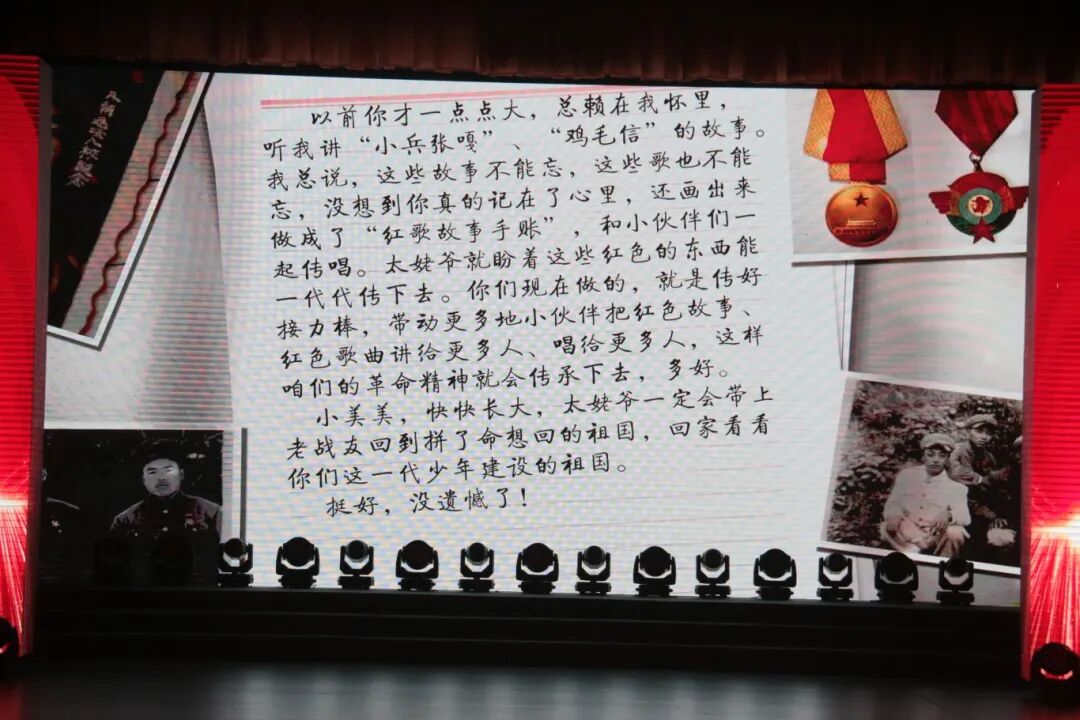 以前你才一点点大，总赖在我怀里，
听我讲“小兵张嘎”、“鸡毛信”的故事。
我总说，这些故事不能忘，这些歌也不能
忘，没想到你真的记在了心里，还画出来
做成了“红歌故事手账”，和小伙伴们一
起传唱。太姥爷就盼着这些红色的东西能
一代代传下去。你们现在做的，就是传好
接力棒，带动更多地小伙伴把红色故事、
红色歌曲讲给更多人、唱给更多人，这样
咱们的革命精神就会传承下去，多好。
小美美，快快长大，太姥爷一定会带上
老战友回到拼了命想回的祖国，回家看看
你们这一代少年建设的祖国。
挺好，没遗憾了！